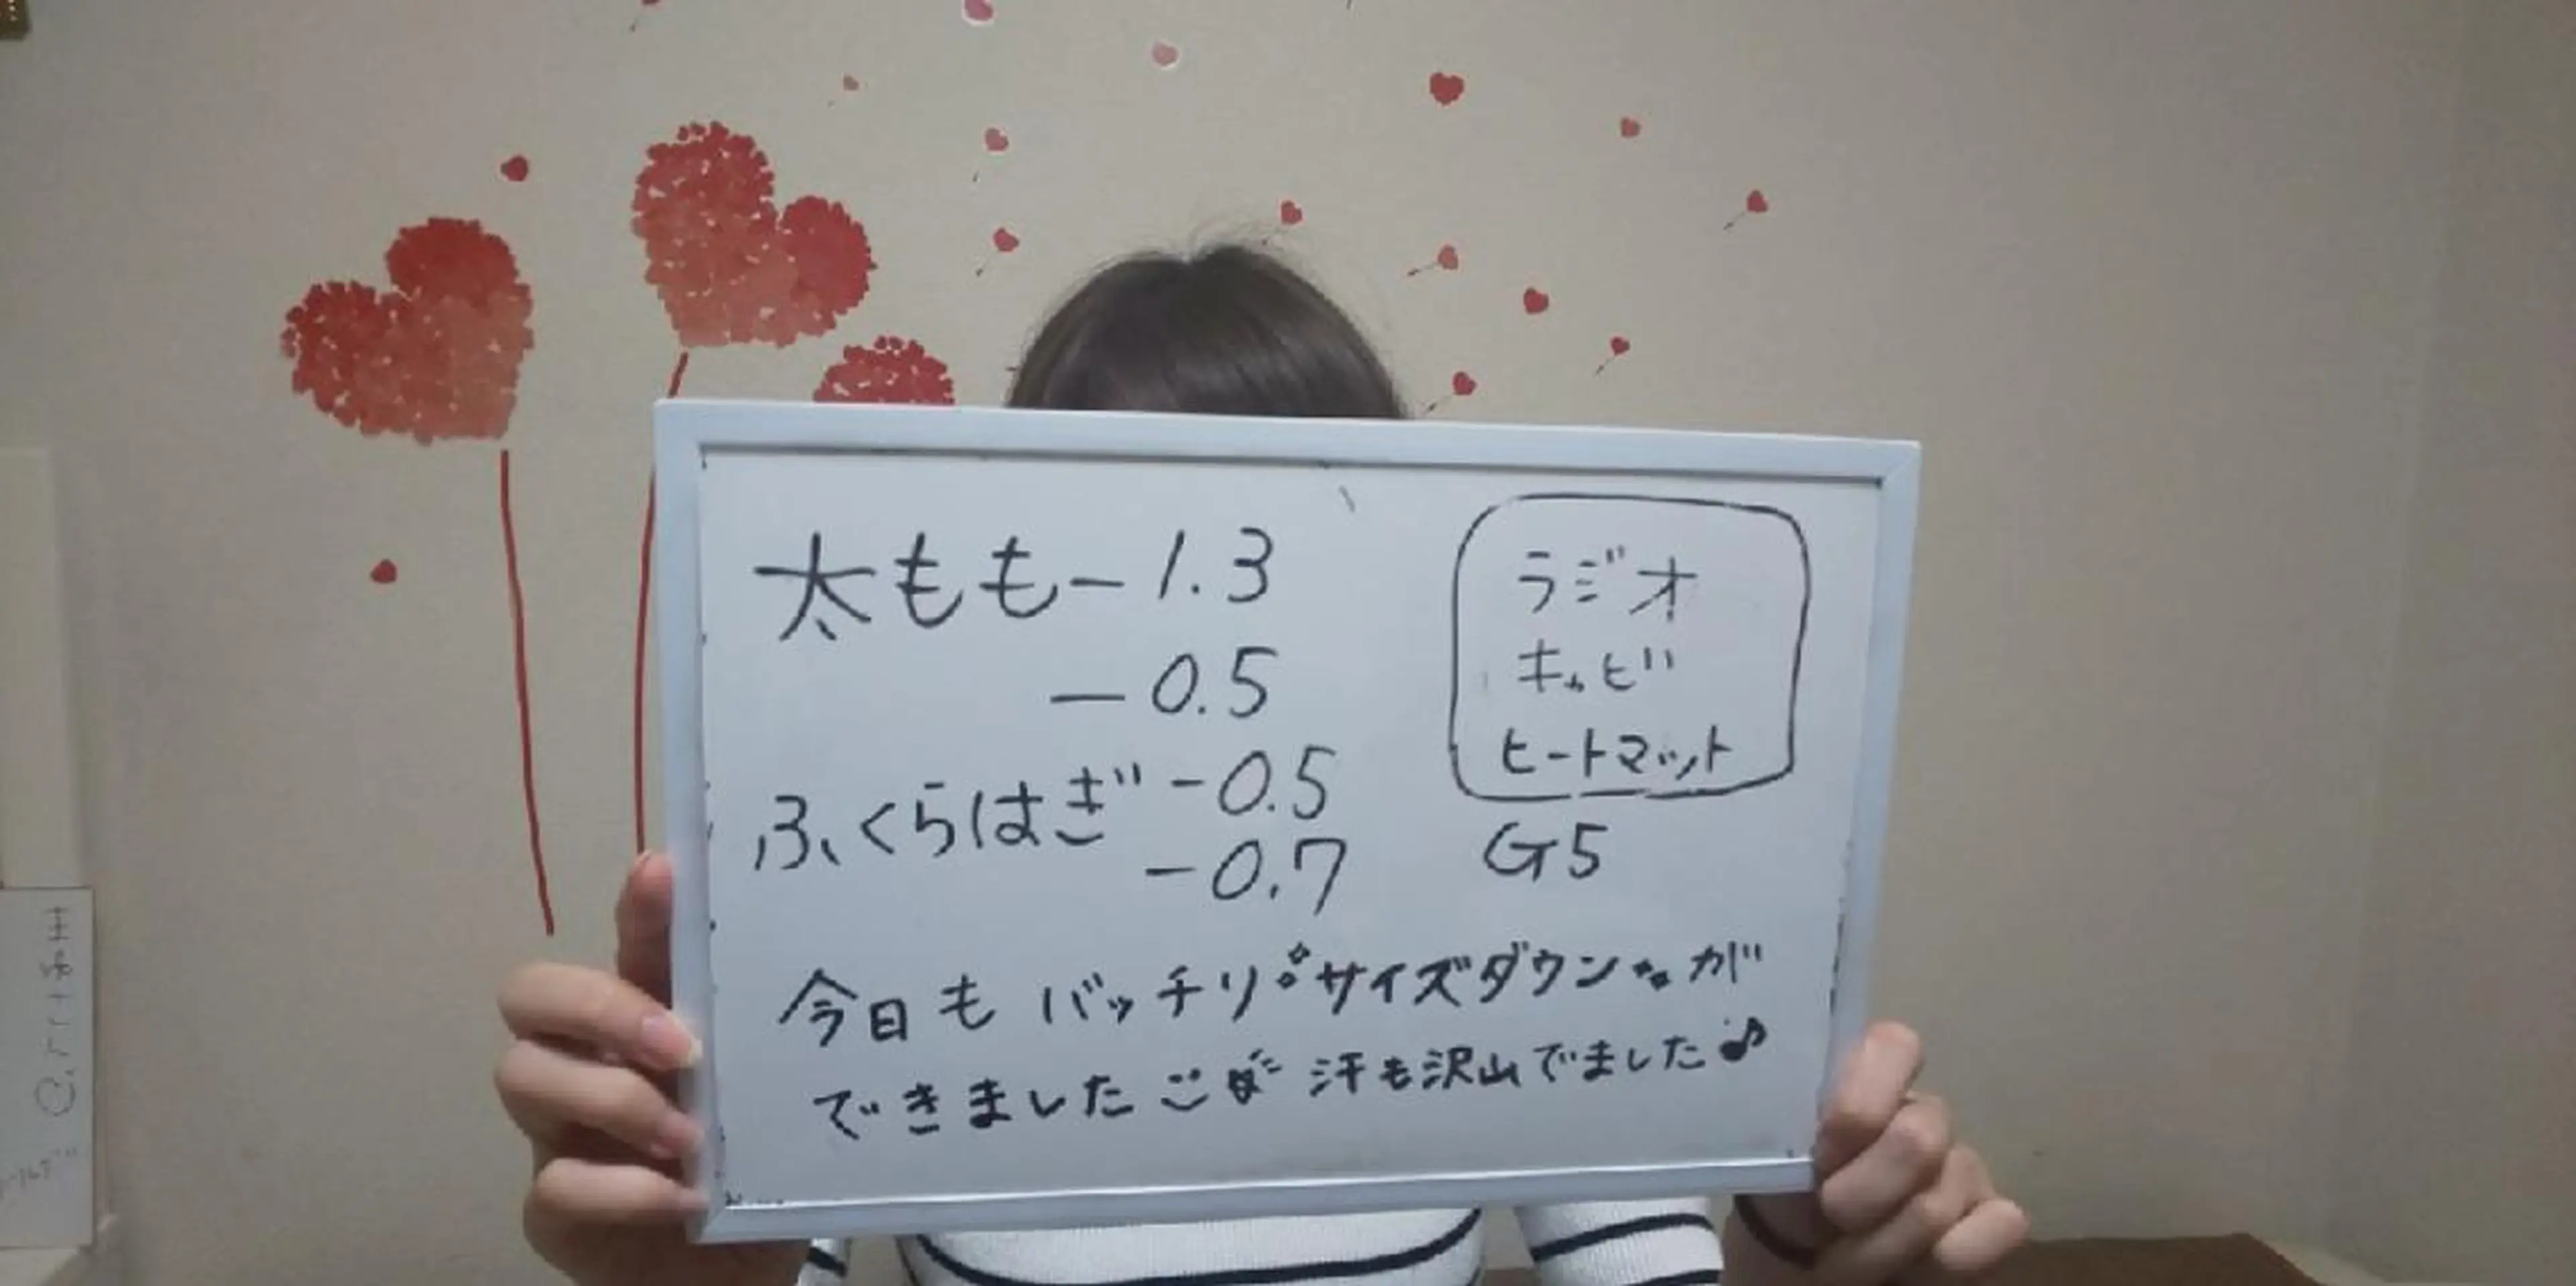 太もも-1.3
-0.5
ふくらはぎ-0.5
-0.7
ラジオ
キャビ
ヒートマット
G5
今日もバッチリサイズダウンが
できました 汗も沢山でました♪